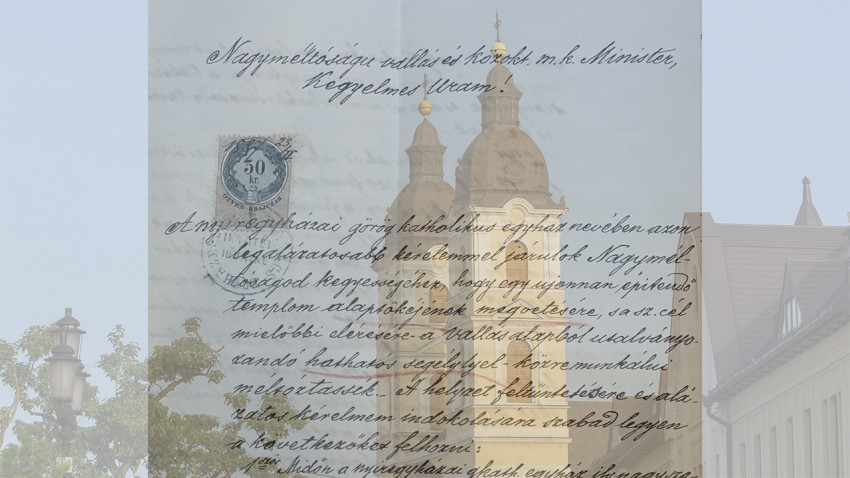 Nagyméltóságu vallás és közokt. m. k. Minister,
Kegyelmes Uram!
50
kr.
A nyiregyházai görög katholikus egyház nevében azon
legalázatosabb kérelemmel járulok Nagymél-
tóságod kegyességéhez, hogy egy ujonnan építendő
templom alaptőkéjének megvetésére, s a sz. cél
mielőbbi elérésére a vallásalapból utalványo-
zandó hathatos segélylyel közremunkálni
méltóztassék. A helyzet feltüntetésére és alá-
zatos kérelmem indokolására szabad legyen
a következőket felhozni:
1ször Midőn a nyiregyházai gkath. egyház